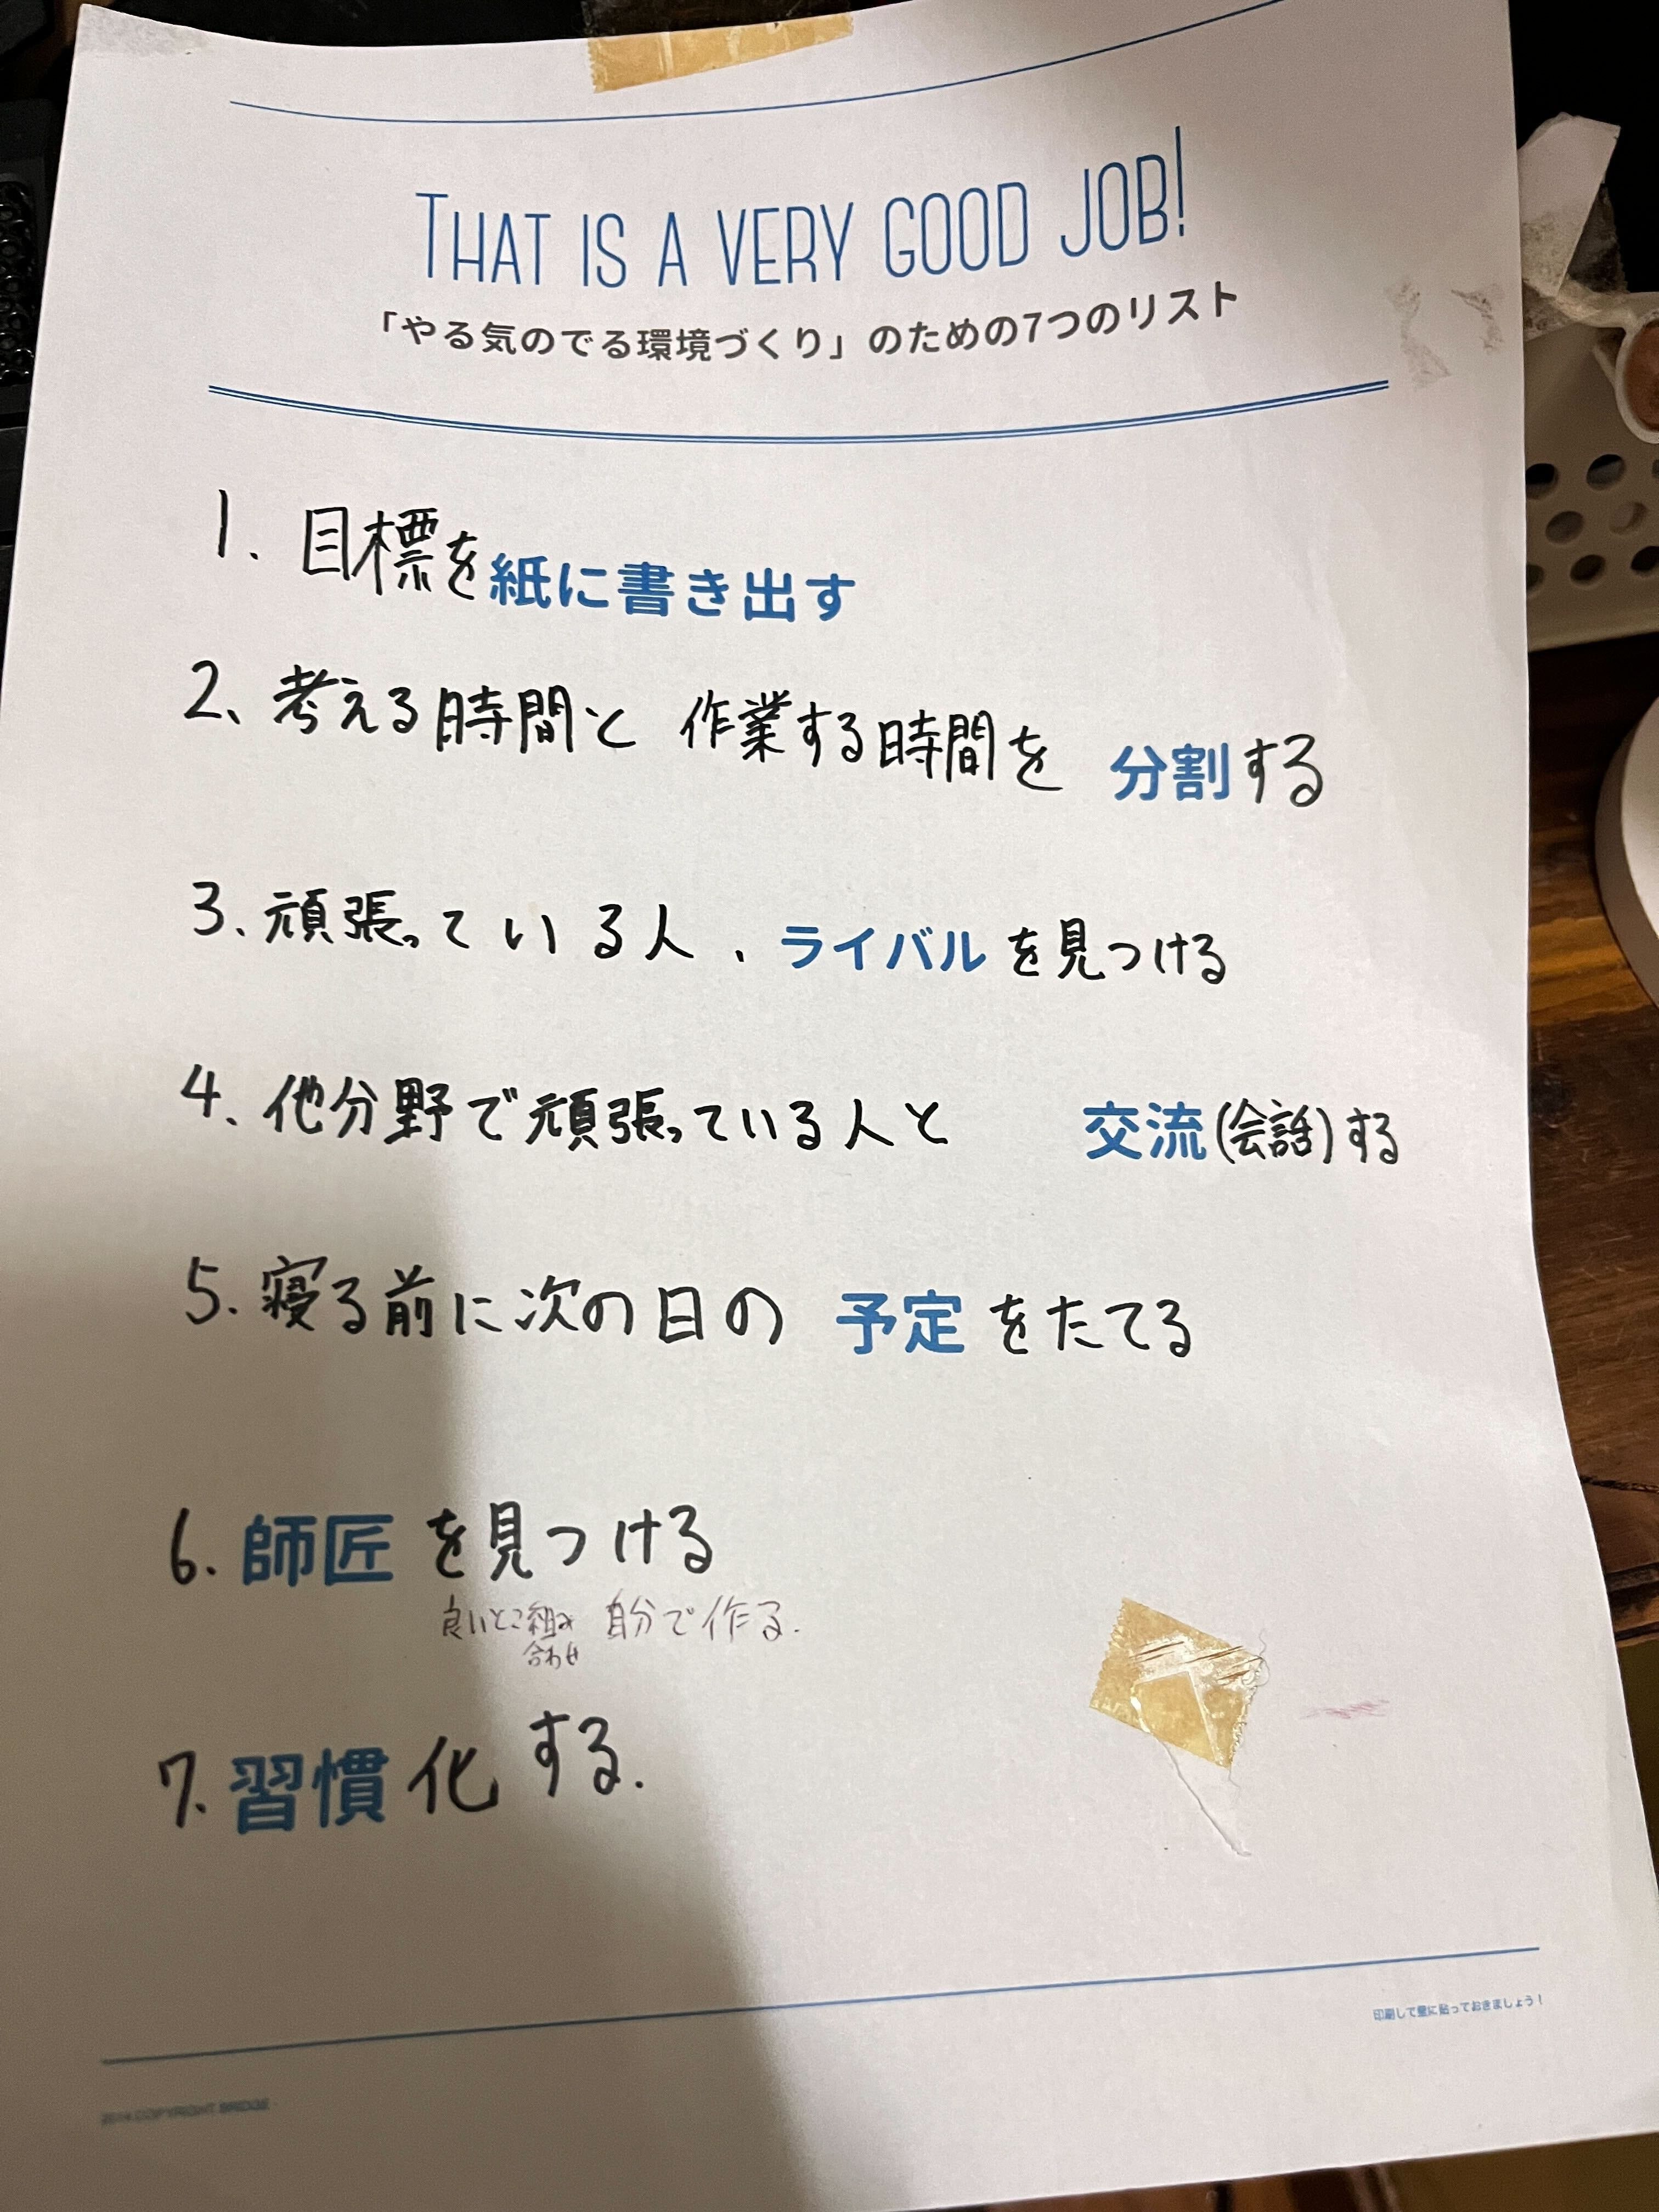 THAT IS A VERY GOOD JOB!
「やる気のでる環境づくり」のための7つのリスト
1. 目標を紙に書き出す
2、考える時間と 作業する時間を 分割する
3、頑張っている人、ライバルを見つける
4、他分野で頑張っている人と 交流(会話)する
5. 寝る前に次の日の 予定をたてる
6. 師匠を見つける
良いとこ組み合わせ 自分で作る.
7. 習慣化する.
印刷して壁に貼っておきましょう!
2014 COPYRIGHT BRIDGE